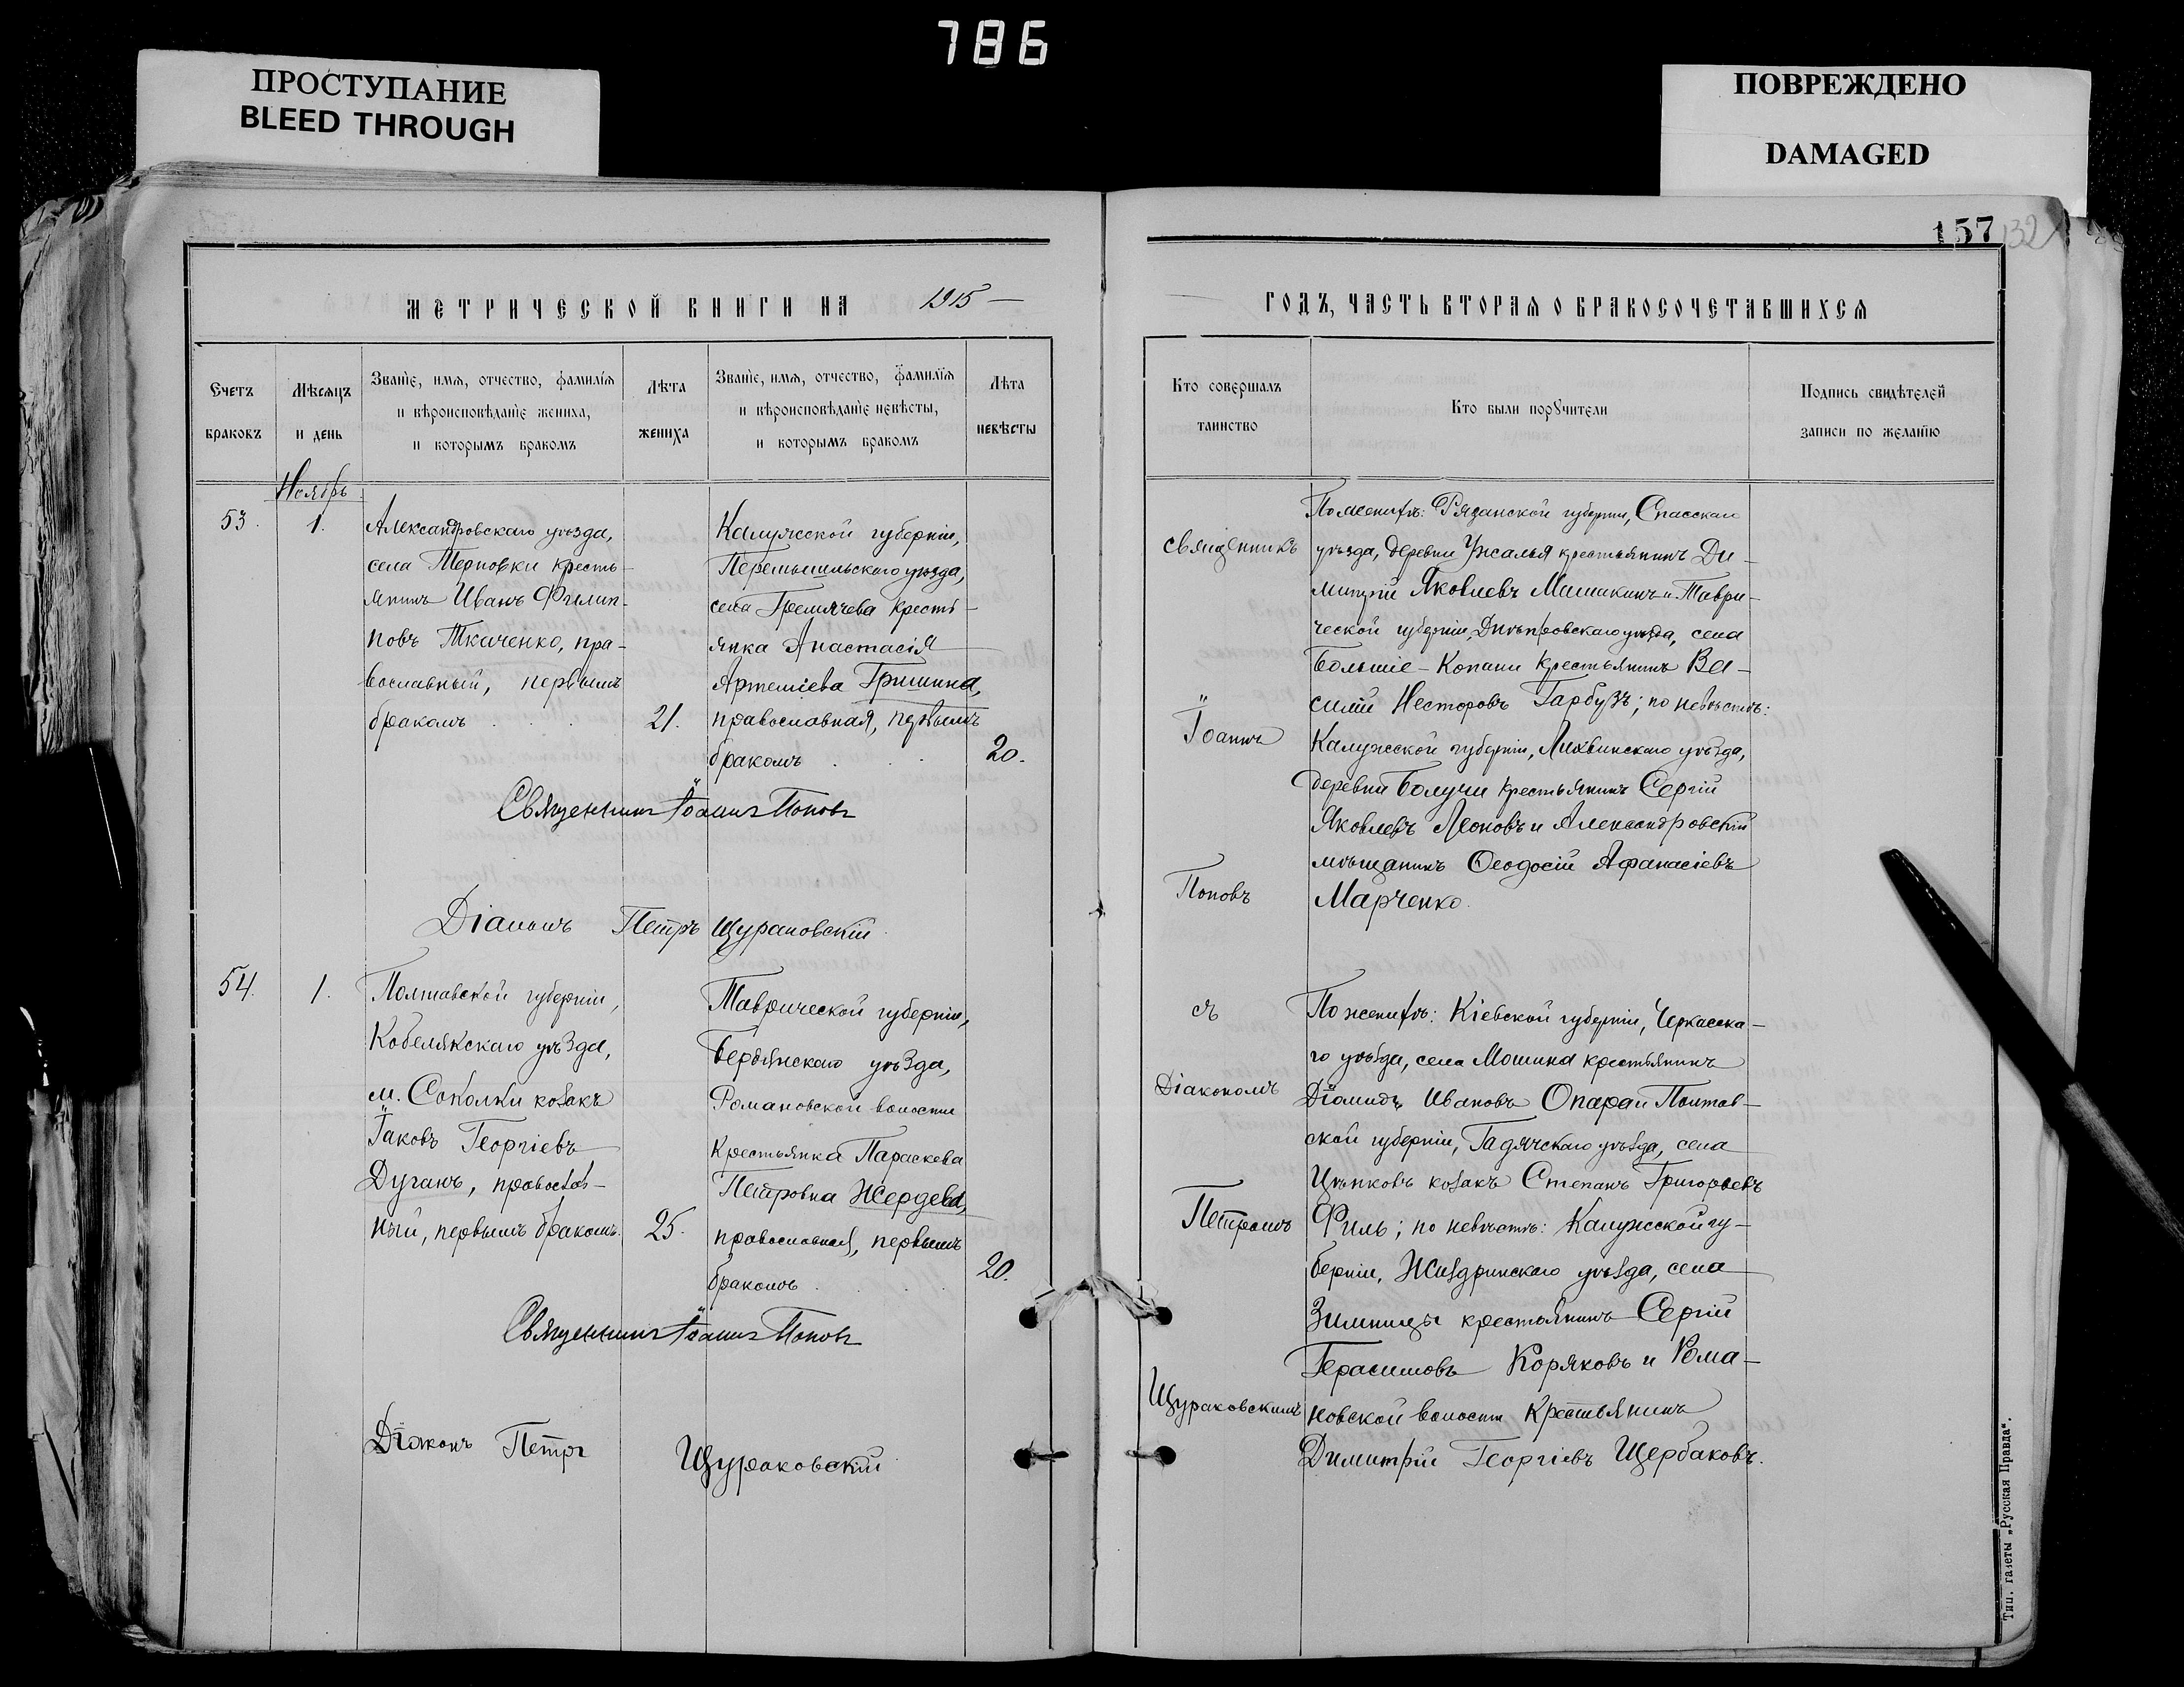 786
ПРОСТУПАНИЕ
BLEED THROUGH
ПОВРЕЖДЕНО
DAMAGED
157
132
МЕТРИЧЕСКОЙ КНИГИ НА 1915
Счетъ
браковъ
Мѣсяцъ
и день
Званіе, имя, отчество, фамилія
и вѣроисповѣданіе жениха,
и которымъ бракомъ
Лѣта
жениха
Званіе, имя, отчество, фамилія
и вѣроисповѣданіе невѣсты,
и которымъ бракомъ
Лѣта
невѣсты
Ноябрь
53.
1.
Александровскаго уѣзда,
села Терновки кресть-
янинъ Иванъ Филип-
повъ Ткаченко, пра-
вославный, первымъ
бракомъ
21.
Калужской губерніи,
Перемышльскаго уѣзда,
села Гремячева кресть-
янка Анастасія
Артеміева Гришина,
православная, первымъ
бракомъ
20.
Священникъ Іоаннъ Поповъ
Діаконъ Петръ Щураковскій
54.
1.
Полтавской губерніи,
Кобелякскаго уѣзда,
м. Соколки козакъ
Іаковъ Георгіевъ
Дуганъ, православ-
ный, первымъ бракомъ.
25.
Таврической губерніи,
Бердянскаго уѣзда,
Романовской волости
крестьянка Параскева
Петровна Жердева,
православная, первымъ
бракомъ
20.
Священникъ Іоаннъ Поповъ
Діаконъ Петръ Щураковскій
ГОДЪ, ЧАСТЬ ВТОРАЯ О БРАКОСОЧЕТАВШИХСЯ
Кто совершалъ
таинство
Кто были поручители
Подпись свидѣтелей
записи по желанію
священникъ
Іоаннъ
Поповъ
съ
Діакономъ
Петромъ
Щураковскимъ
По женихѣ: Рязанской губерніи, Спасскаго
уѣзда, деревни Ужалья крестьянинъ Ди-
митрій Яковлевъ Машакинъ и Таври-
ческой губерніи, Днѣпровскаго уѣзда, села
Большіе-Копани крестьянинъ Ва-
силій Несторовъ Гарбузъ; по невѣстѣ:
Калужской губерніи, Лихвинскаго уѣзда,
деревни Болучи крестьянинъ Сергій
Яковлевъ Леоновъ и Александровскій
мѣщанинъ Ѳеодосій Афанасіевъ
Марченко.
По женихѣ: Кіевской губерніи, Черкасска-
го уѣзда, села Мошина крестьянинъ
Діомидъ Ивановъ Опара и Полтав-
ской губерніи, Гадячскаго уѣзда, села
Цѣпковъ козакъ Степанъ Григорьевъ
Филь; по невѣстѣ: Калужской гу-
берніи, Жиздринскаго уѣзда, села
Зимницы крестьянинъ Сергій
Герасимовъ Коряковъ и Рома-
новской волости крестьянинъ
Димитрій Георгіевъ Щербаковъ.
Тип. газеты „Русская Правда".